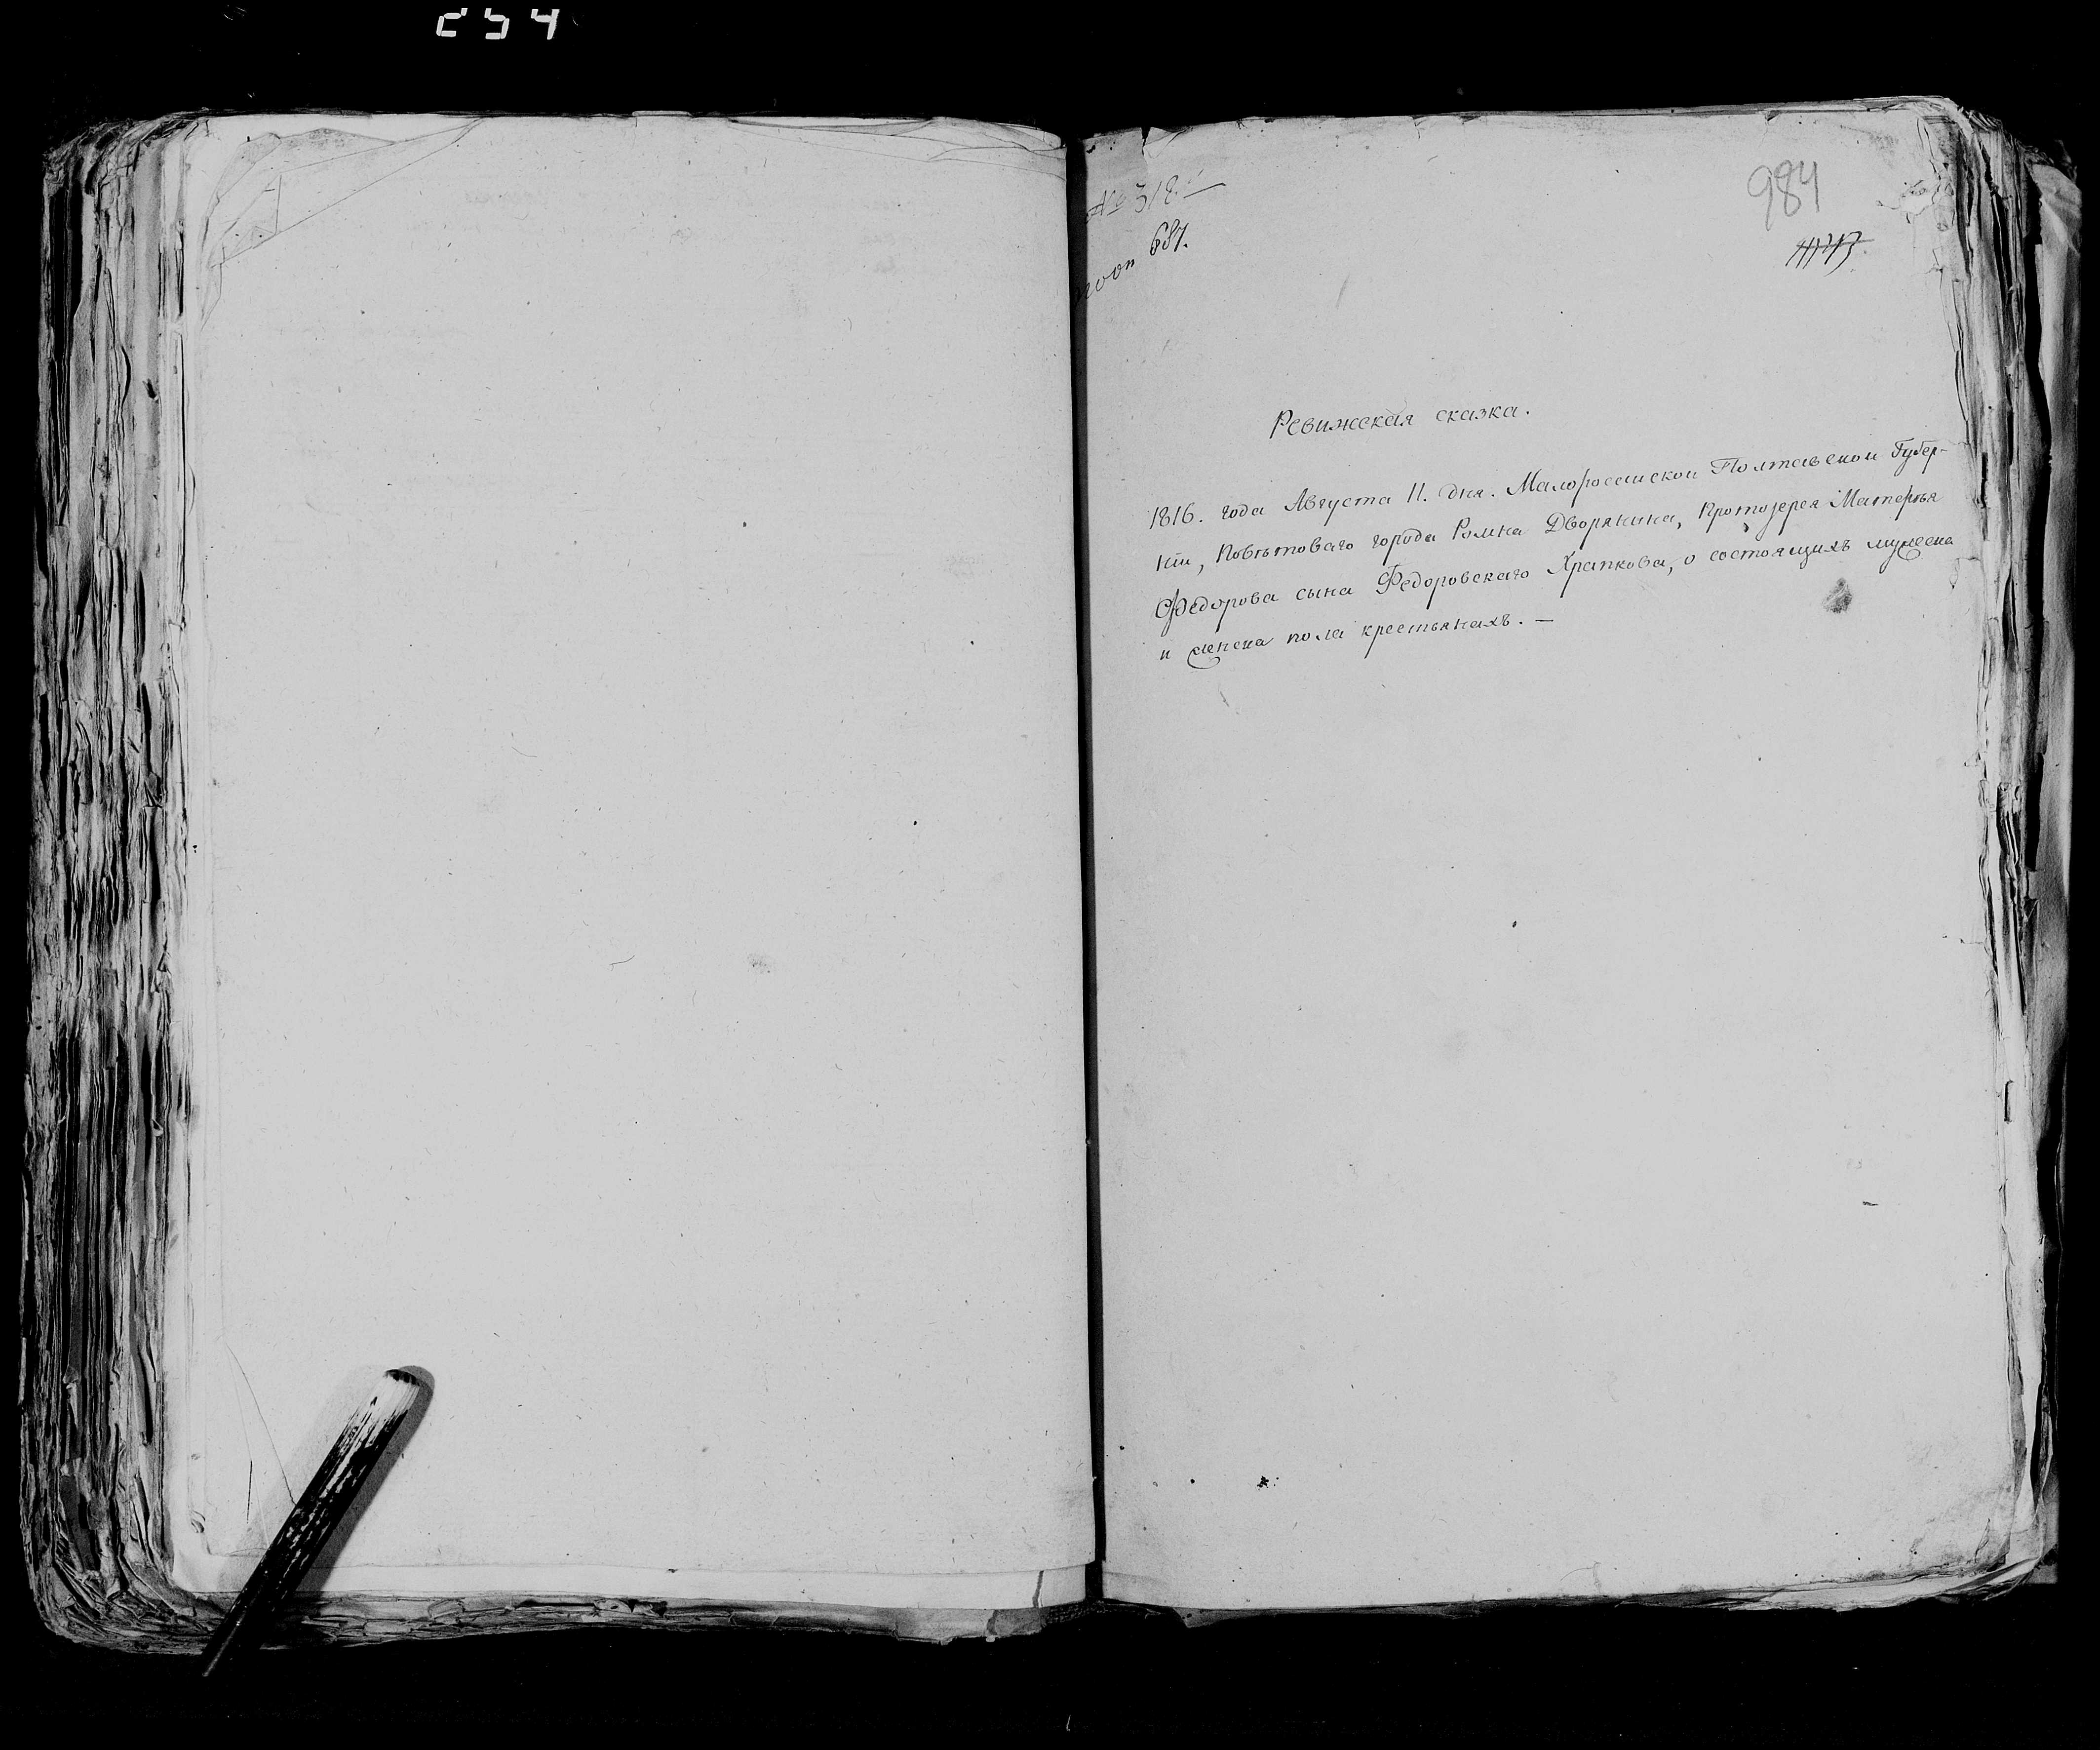 254
№ 318
984
по оп 687.
Ревижская сказка.
1816. года Августа 11. дня. Малороссииской Полтавской Губер-
нiи, Повѣтоваго города Ромна Дворянина, Протоiерея Матерѣя
Федорова сына Федоровскаго Храпкова, о состоящихъ мужеска
и женска пола крестьянахъ. —